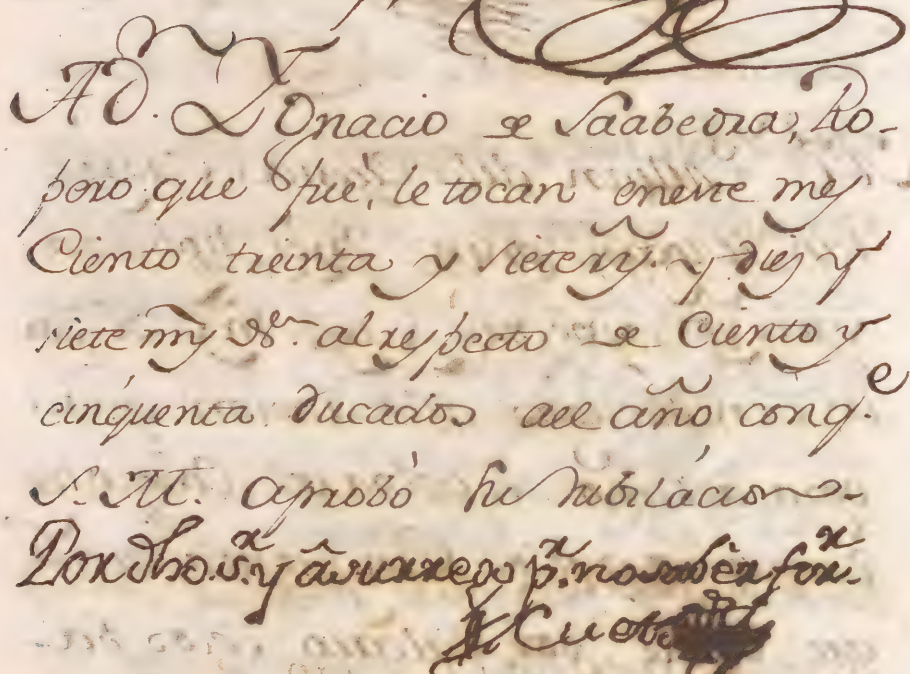 A D.n Ygnacio de Saabedra, Ro-
pero que fué, le tocan en este mes
Ciento treinta y siete rr.s y diez y
siete mrs. de vn. al respecto de Ciento y
cinquenta ducados al año con q.e
S. M. aprobó su jubilacion.
Por dho. s.r y â su ruego p.r no saber for.r
Cueto